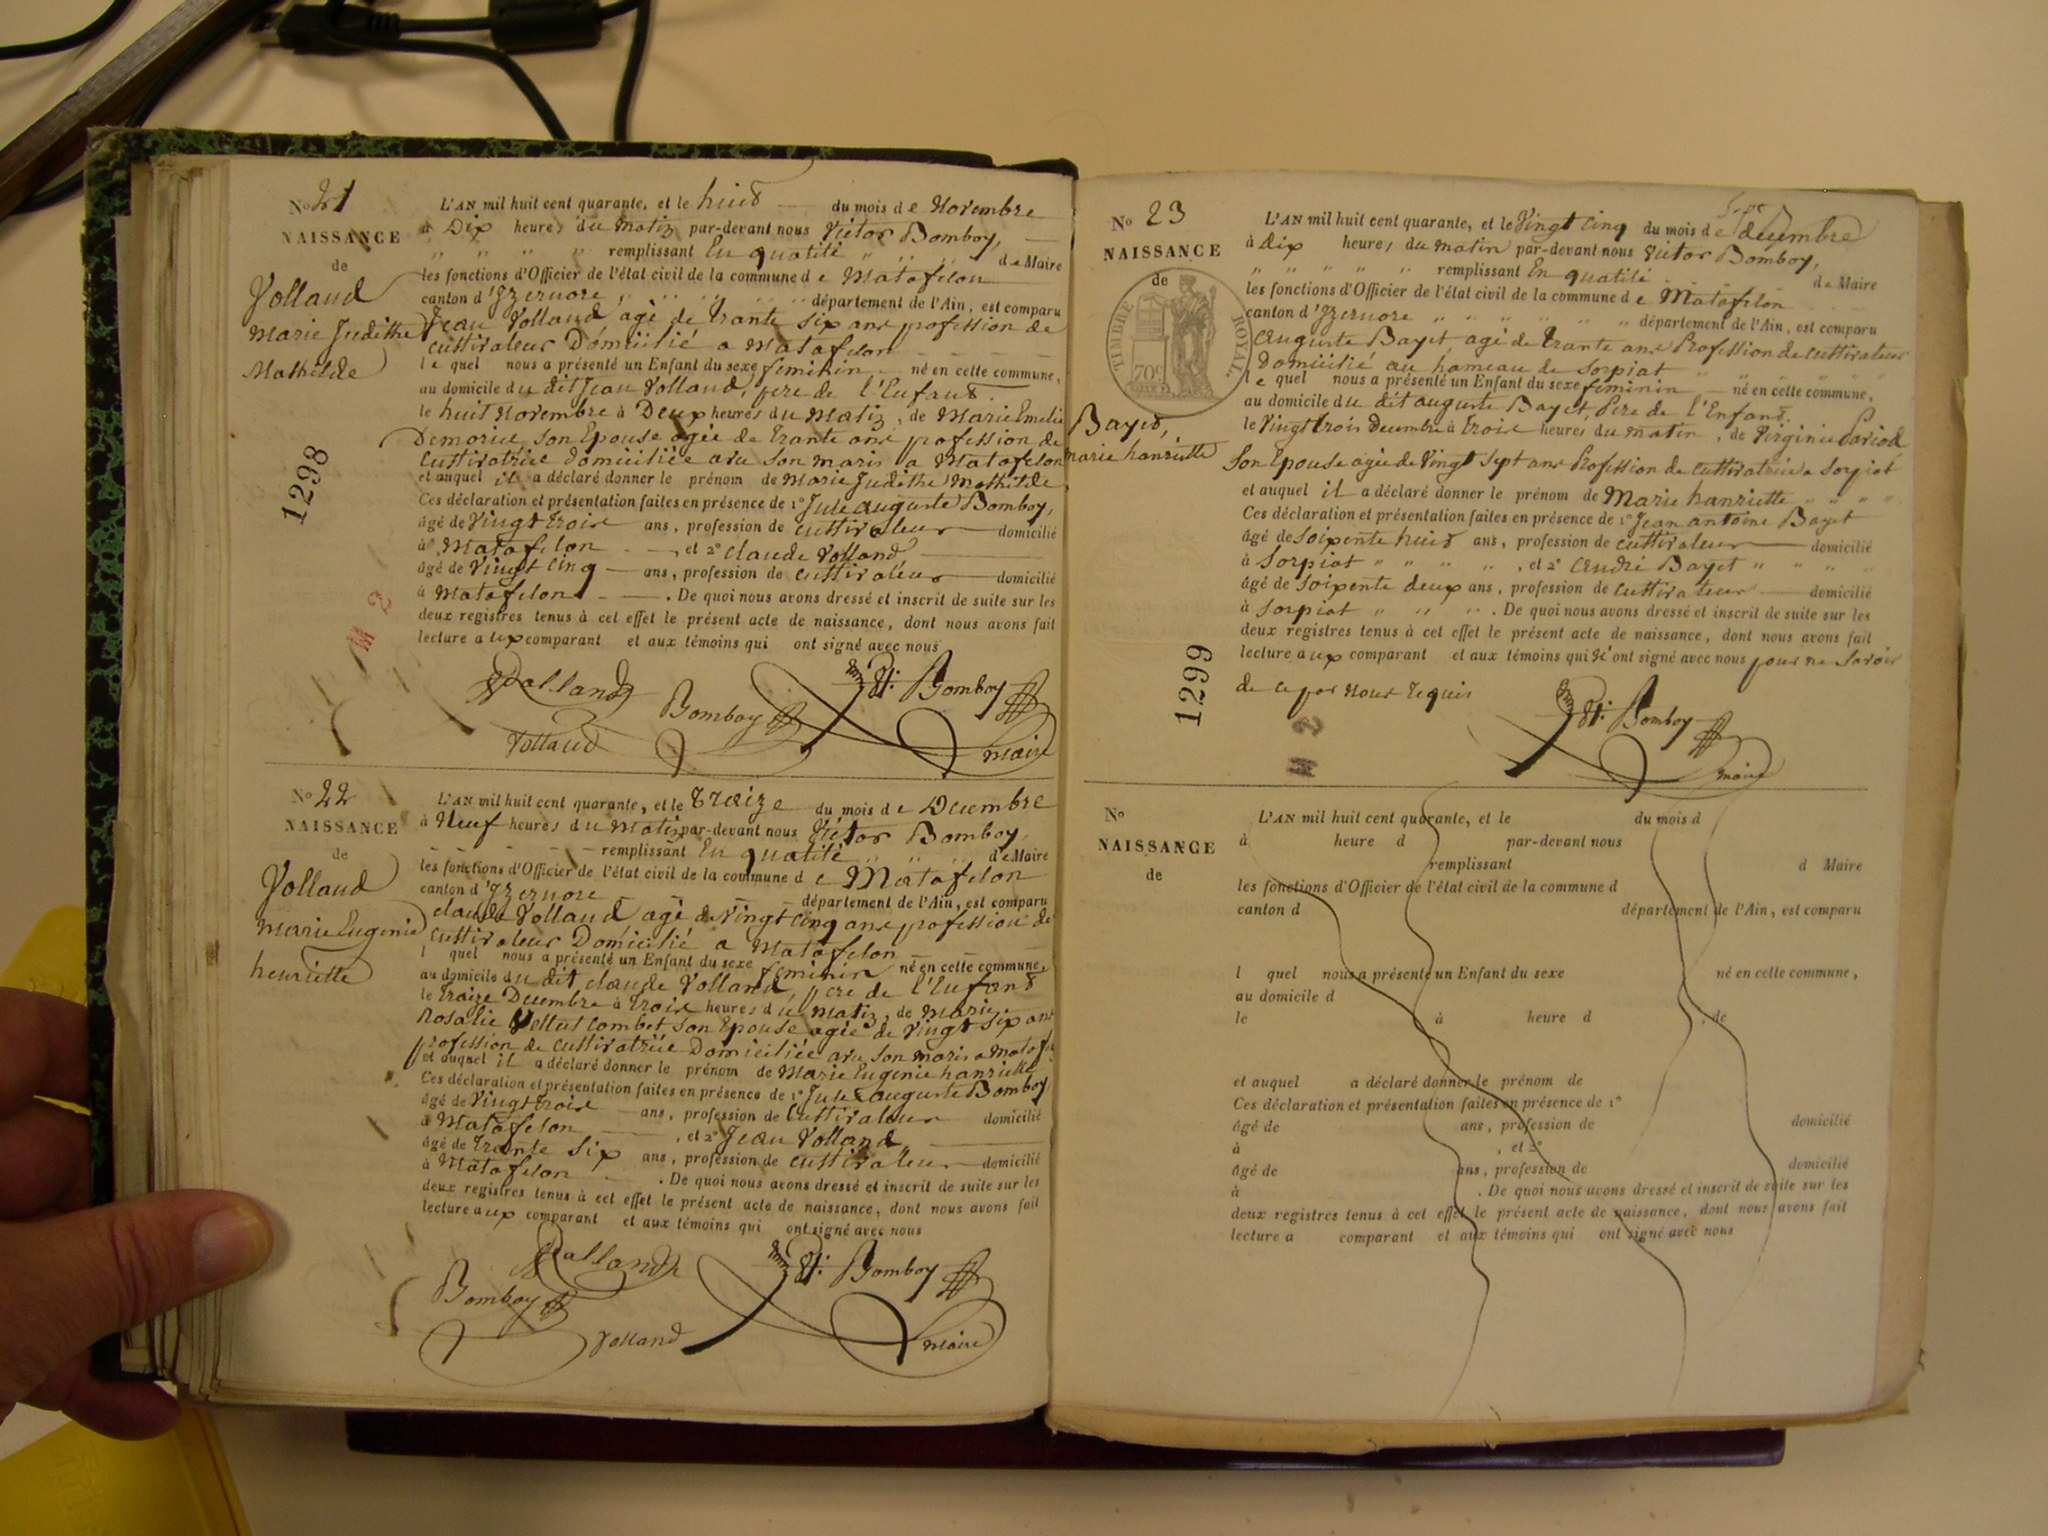 No 21
NAISSANCE
de
Volland
Marie Judithe
Mathilde
1298
L'AN mil huit cent quarante, et le huit du mois de Novembre
à Dix heures du matin par-devant nous Victor Bomboy,
" " " " remplissant En qualité " " " de Maire
les fonctions d'Officier de l'état civil de la commune de Matafelon
canton d'Izernore " " " " " département de l'Ain, est comparu
Jean Volland agé de trante six ans profession de
cultivateur Domicilié a Matafelon
le quel nous a présenté un Enfant du sexe feminin né en cette commune,
au domicile du dit Jean Volland, pere de l'Enfant.
le huit Novembre à Deux heures du Matin, de Marie Emelie
Demorice son Epouse agée de trante ans profession de
cultivatrice domiciliée avec son maris a Matafelon
et auquel il a déclaré donner le prénom de Marie Judithe Mathilde
Ces déclaration et présentation faites en présence de 1° Jule auguste Bomboy,
âgé de Vingt trois ans, profession de cultivateur domicilié
à Matafelon , et 2° claude Volland
âgé de Vingt cinq ans, profession de cultivateur domicilié
à Matafelon . De quoi nous avons dressé et inscrit de suite sur les
deux registres tenus à cet effet le présent acte de naissance, dont nous avons fait
lecture aux comparant et aux témoins qui ont signé avec nous
Volland
Bomboy
Vr. Bomboy
Volland
maire
No 22
NAISSANCE
de
Volland
Marie Eugenie
henriette
L'AN mil huit cent quarante, et le Treize du mois de Decembre
à Neuf heures du Matin par-devant nous Victor Bomboy,
remplissant En qualité " " " de Maire
les fonctions d'Officier de l'état civil de la commune de Matafelon
canton d'Izernore département de l'Ain, est comparu
claude Volland agé de Vingt cinq ans profession de
cultivateur Domicilié a Matafelon
l quel nous a présenté un Enfant du sexe feminin né en cette commune,
au domicile du dit claude Volland, pere de l'Enfant
le traize Decembre à trois heures du Matin, de Marie
Rosalie Combet son Epouse agée de Vingt six ans
profession de cultivatrice Domiciliée avec son maris a Matafe
et auquel il a déclaré donner le prénom de Marie Eugenie hanriette
Ces déclaration et présentation faites en présence de 1° Jule auguste Bomboy
âgé de Vingt trois ans, profession de Cultivateur domicilié
à Matafelon , et 2° Jean Volland
âgé de trante six ans, profession de cultivateur domicilié
à Matafelon . De quoi nous avons dressé et inscrit de suite sur les
deux registres tenus à cet effet le présent acte de naissance, dont nous avons fait
lecture aux comparant et aux témoins qui ont signé avec nous
Volland
Bomboy
Vr. Bomboy
Volland
maire
No 23
NAISSANCE
de
TIMBRE ROYAL.
70c
Bayet,
marie hanriette
1299
L'AN mil huit cent quarante, et le Vingt cinq du mois de decembre
à dix heures du matin par-devant nous Victor Bomboy,
" " " " " remplissant En qualité de Maire
les fonctions d'Officier de l'état civil de la commune de Matafelon
canton d'Izernore " " " " " " département de l'Ain, est comparu
auguste Bayet agé de trante ans Profession de cultivateur
Domicilié au hameau de Sorpiat
le quel nous a présenté un Enfant du sexe feminin né en cette commune,
au domicile du dit auguste Bayet Pere de l'Enfant.
le Vingt trois decembre à trois heures du matin, de Virginie Pariod
Son Epouse agée de Vingt Sept ans Profession de cultivatrice a Sorpiat
et auquel il a déclaré donner le prénom de Marie hanriette " " " "
Ces déclaration et présentation faites en présence de 1° Jean antoine Bayet
âgé de soixente huit ans, profession de cultivateur domicilié
à Sorpiat " " " " , et 2° andré Bayet " " " "
âgé de soixente deux ans, profession de cultivateur domicilié
à Sorpiat " " " . De quoi nous avons dressé et inscrit de suite sur les
deux registres tenus à cet effet le présent acte de naissance, dont nous avons fait
lecture aux comparant et aux témoins qui n'ont signé avec nous pour ne savoir
de ce par nous requis
Vr. Bomboy
maire
No
NAISSANCE
de
L'AN mil huit cent quarante, et le du mois d
à heure d par-devant nous
remplissant d Maire
les fonctions d'Officier de l'état civil de la commune d
canton d département de l'Ain, est comparu
l quel nous a présenté un Enfant du sexe né en cette commune,
au domicile d
le à heure d , de
et auquel a déclaré donner le prénom de
Ces déclaration et présentation faites en présence de 1°
âgé de ans, profession de domicilié
à , et 2°
âgé de ans, profession de domicilié
à . De quoi nous avons dressé et inscrit de suite sur les
deux registres tenus à cet effet le présent acte de naissance, dont nous avons fait
lecture a comparant et aux témoins qui ont signé avec nous